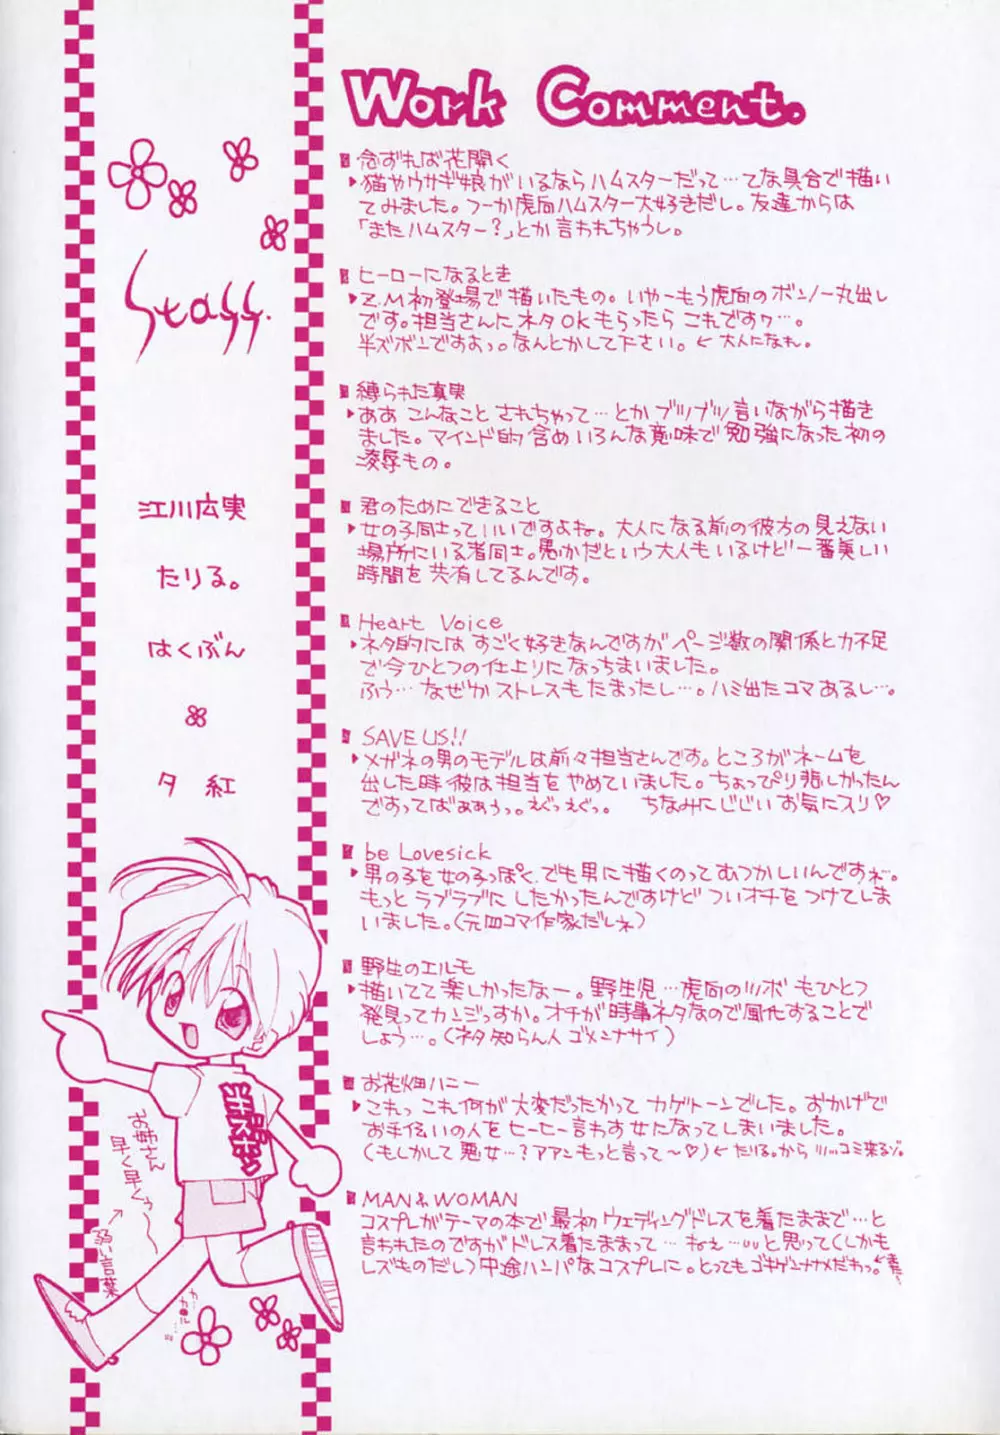 Work Comment.
念ずれば花開く
▶猫やウサギ娘がいるならハムスターだって…てな具合で描い
てみました。つーか虎向ハムスター大好きだし。友達からは
「またハムスター?」とか言われちゃうし。
ヒーローになるとき
▶Z.M初登場で描いたもの。いやーもう虎向のボンノー丸出し
です。担当さんにネタOKもらったらこれですワ…。
半ズボンですよっ。なんとかして下さい。←大人になれ。
縛られた真実
▶ああこんなことされちゃって…とかブツブツ言いながら描き
ました。マインド的含めいろんな意味で勉強になった初の
凌辱もの。
君のためにできること
▶女の子同士っていいですよね。大人になる前の彼方の見えない
場所にいる者同士。愚かだという大人もいるけど一番美しい
時間を共有してるんです。
Heart Voice
▶ネタ的にはすごく好きなんですがページ数の関係と力不足
で今ひとつの仕上りになっちまいました。
ふぅ…なぜかストレスもたまったし…。ハミ出たコマあるし…。
SAVE US!!
▶メガネの男のモデルは前々担当さんです。ところがネームを
出した時彼は担当をやめていました。ちょっぴり悲しかったん
ですってばぁぁぅっ。えぐっえぐっ。 ちなみにじじいお気にスリ♡
be Lovesick
▶男の子を女の子っぽく、でも男に描くのってむつかしいんですね。
もっとラブラブにしたかったんですけどついオチをつけてしま
いました。(元四コマ作家だしネ)
野生のエルモ
▶描いてて楽しかったなー。野生児…虎向のツボもひとつ
発見ってカンジっすか。オチが時事ネタなので風化することで
しょう…。(ネタ知らん人ゴメンナサイ)
お花畑ハニー
▶これっこれ何が大変だったかってカゲトーンでした。おかげで
お手伝いの人をヒーヒー言わす女になってしまいました。
(もしかして悪女…?アアンもっと言って〜♡)←たりる。からツッコミ来るゾ。
MAN & WOMAN
コスプレがテーマの本で最初ウェディングドレスを着たままで…と
言われたのですがドレス着たままって…ねぇ…と思って(しかも
レズものだし)中途ハンパなコスプレに。とってもゴキゲンナナメだわっ。
Staff.
江川広実
たりる。
はくぶん
夕紅
半ズボン
お姉さん
早く早くぅ〜
弱い言葉